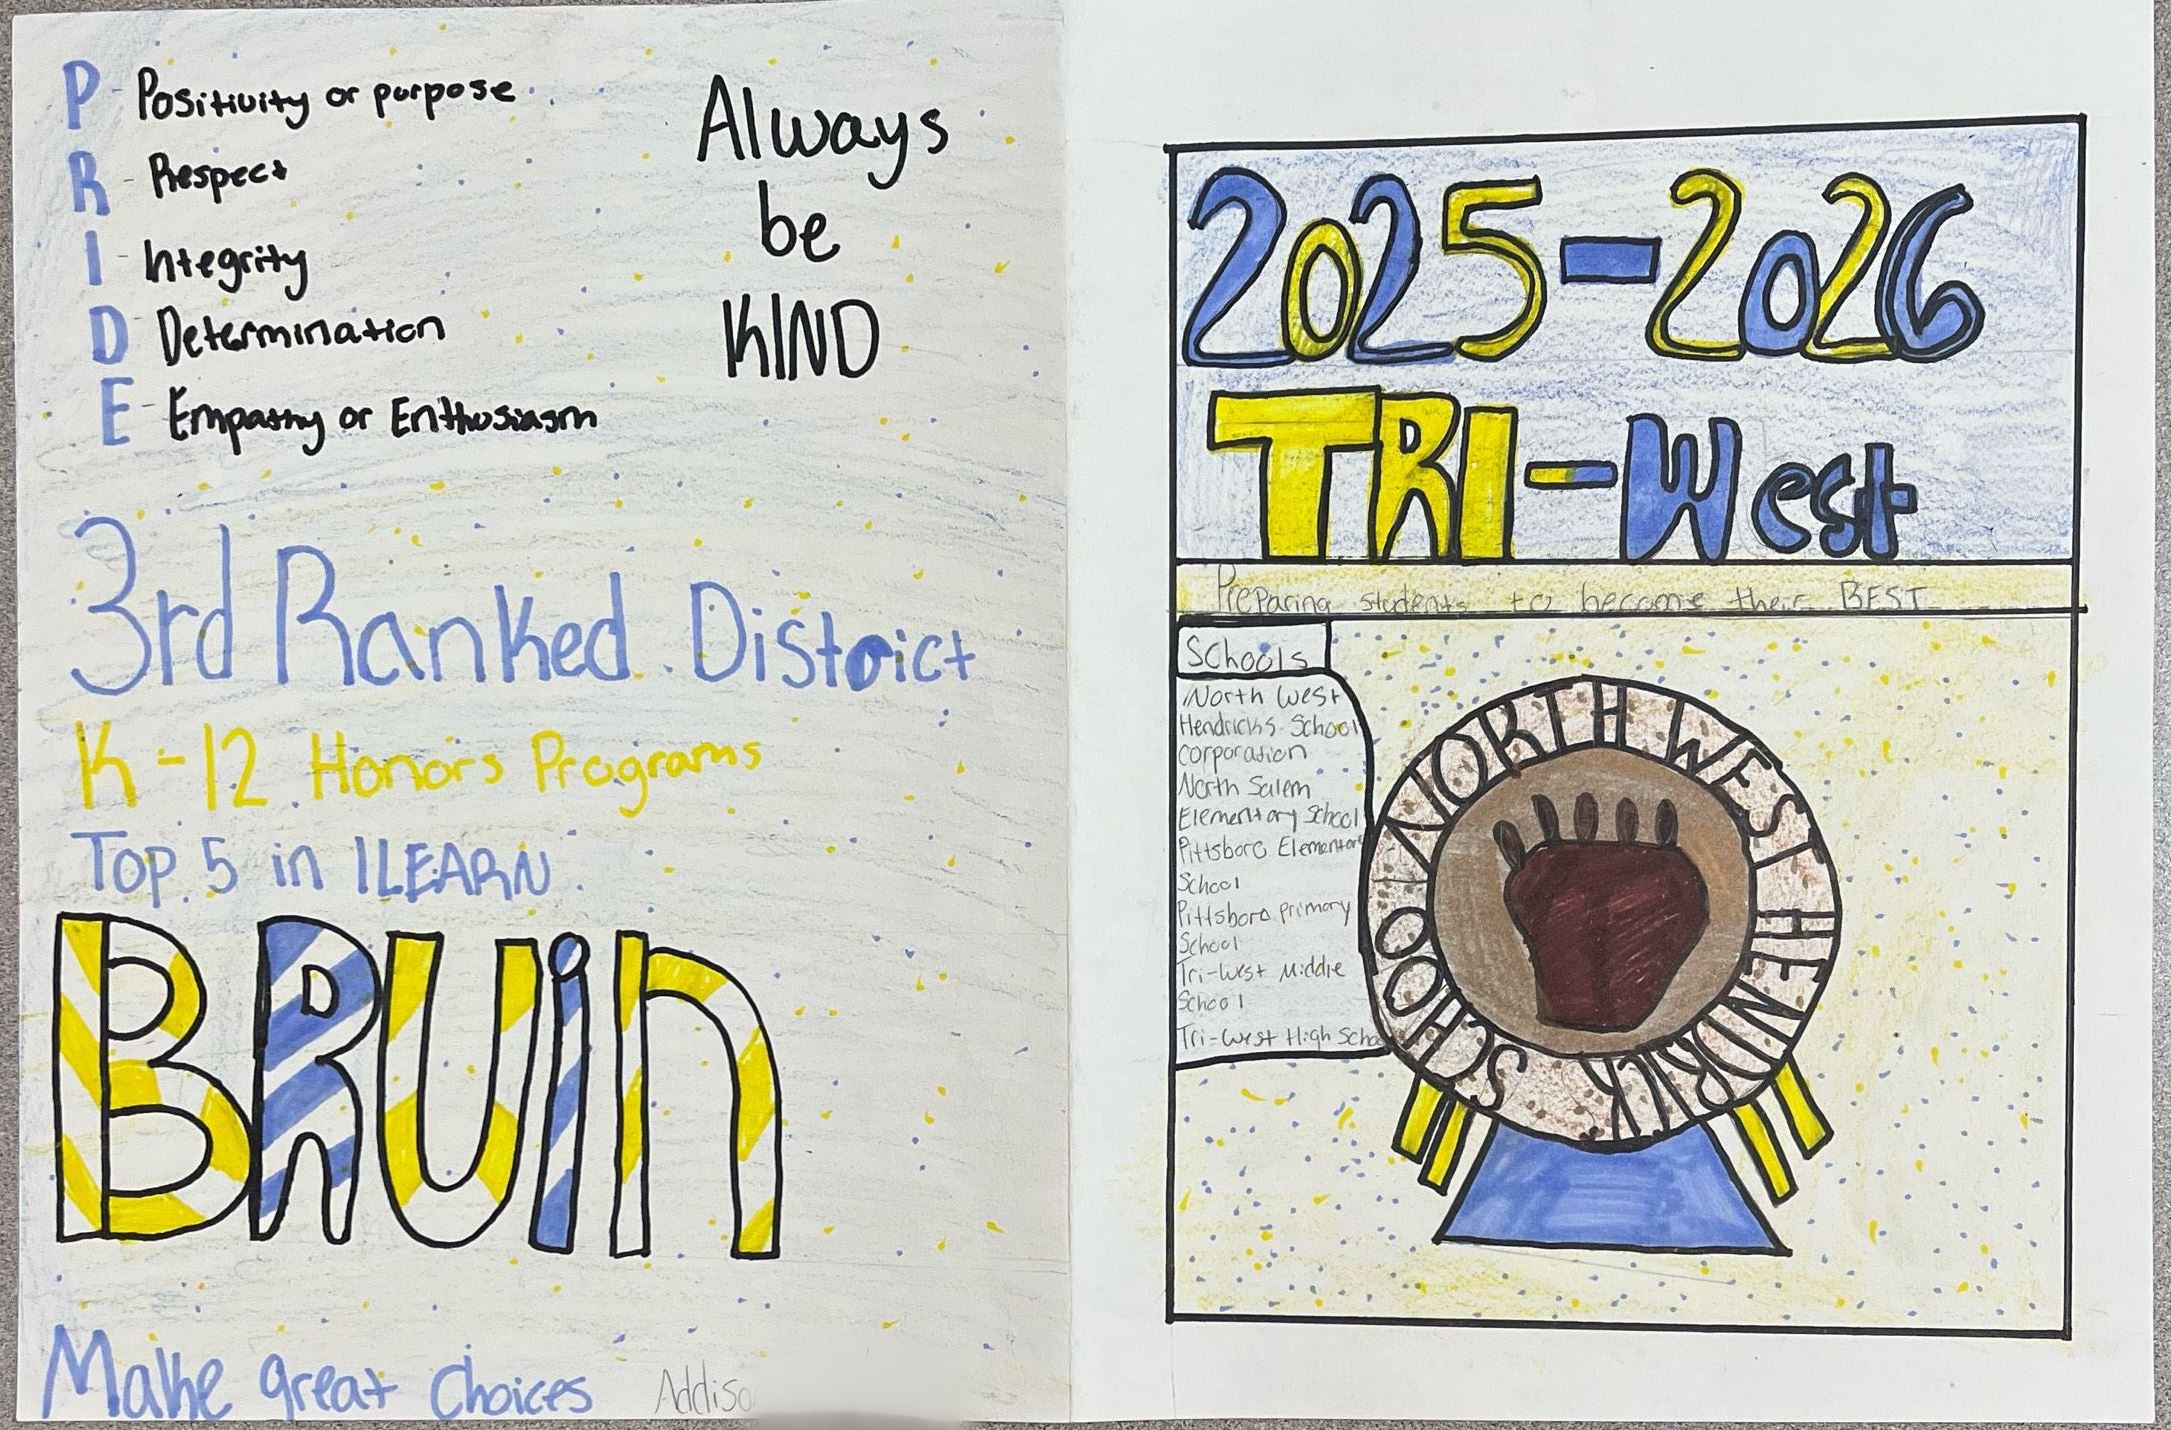 P - Positivity or purpose
R - Respect
I - Integrity
D - Determination
E - Empathy or Enthusiasm
Always
be
KIND
3rd Ranked District
K-12 Honors Programs
Top 5 in ILEARN
BRUin
Make great choices
Addiso
2025-2026
TRI-West
Preparing students to become their BEST
Schools
North West
Hendricks School
corporation
North Salem
Elementary School
Pittsboro Elementary
School
Pittsboro primary
School
Tri-West Middle
School
Tri-West High School
NORTH WEST HENDRICK SCHOOL